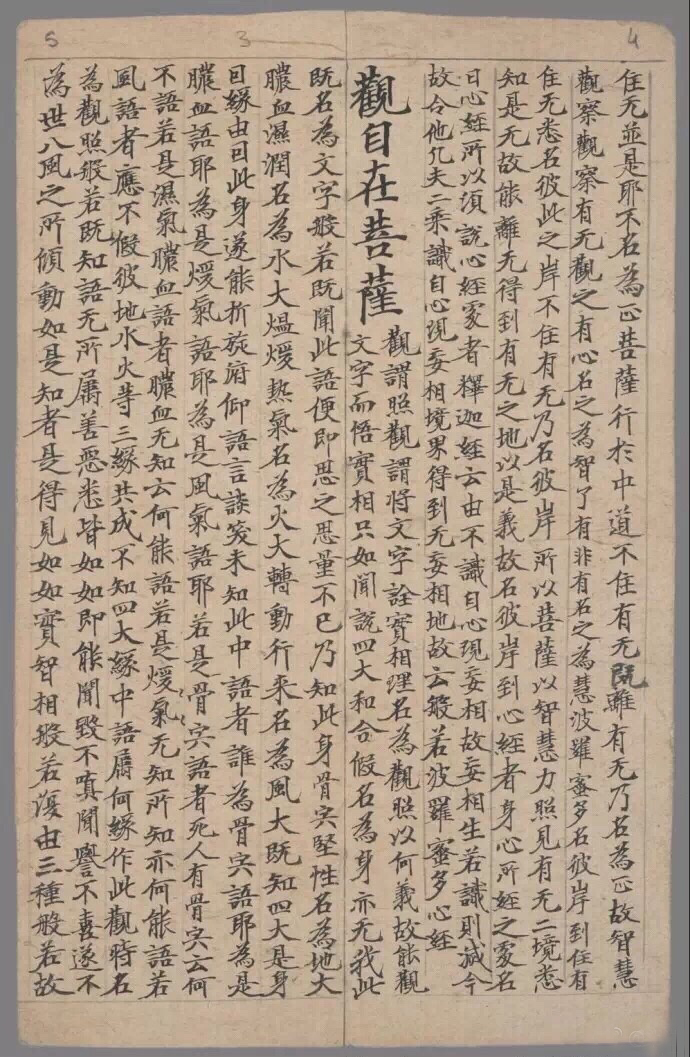 4
3
5
住无並是耶不名為正菩薩行於中道不住有无既離有无乃名為正故智慧
觀察觀察有无觀之有心名之為智了有非有名之為慧波羅蜜多名彼岸到住有
住无悉名彼此之岸不住有无乃名彼岸所以菩薩以智慧力照見有无二境悉
知是无故能離无得到有无之地以是義故名彼岸到心經者身心所經之處名
曰心經所以須說心經處者釋迦經云由不識自心現妄相故妄相生若識則滅今
故令他凡夫二乘識自心現妄相境界得到无妄相地故云般若波羅蜜多心經
觀自在菩薩
觀謂照觀謂將文字詮實相理名為觀照以何義故能觀
文字而悟實相只如聞說四大和合假名為身亦无我此
既名為文字般若既聞此語便即思之思量不已乃知此身骨宍堅性名為地大
膿血濕潤名為水大熅煖熱氣名為火大轉動行来名為風大既知四大是身
因緣由因此身遂能折旋府仰語言談笑未知此中語者誰為骨宍語耶為是
膿血語耶為是煖氣語耶為是風氣語耶若是骨宍語者死人有骨宍云何
不語若是濕氣膿血語者膿血无知云何能語若是煖氣无知所知亦何能語若
風語者應不假彼地水火等三緣共成不知四大緣中語屬何緣作此觀時名
為觀照般若既知語无所屬善惡悉皆如如即能聞毀不嗔聞譽不喜遂不
為世八風之所傾動如是知者是得見如如實智相般若復由三種般若故